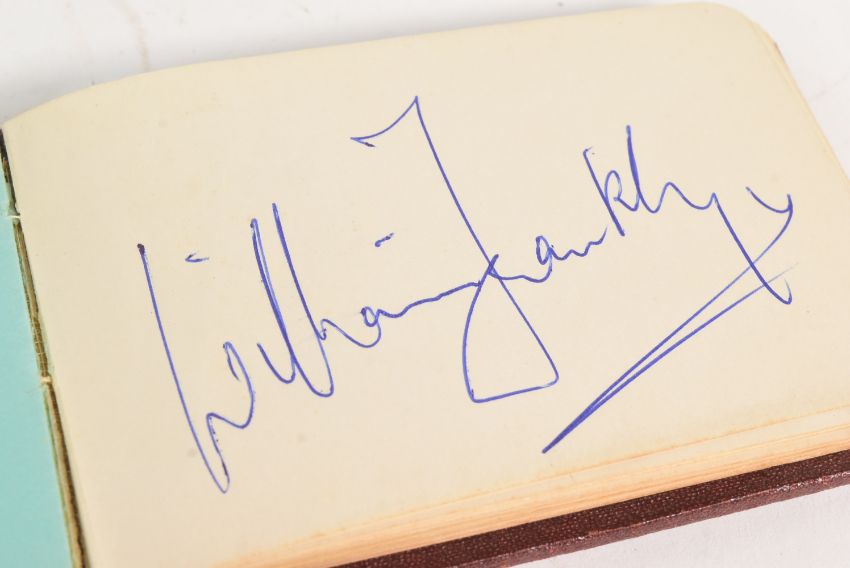 William Franklyn